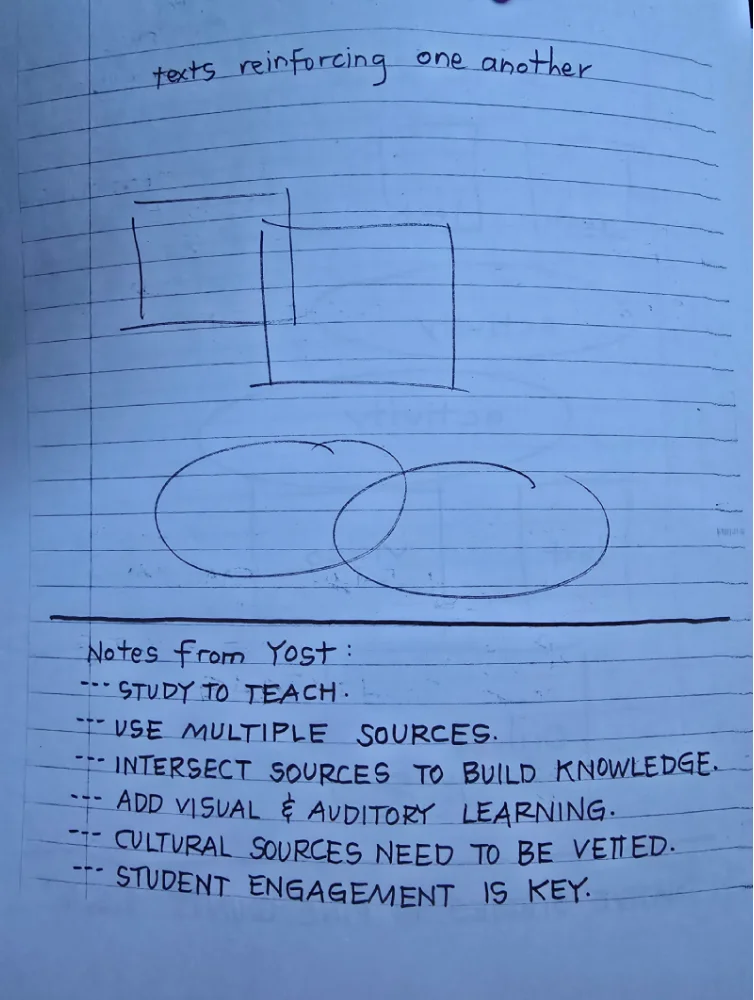 texts reinforcing one another
Notes from Yost:
--- STUDY TO TEACH.
--- USE MULTIPLE SOURCES.
--- INTERSECT SOURCES TO BUILD KNOWLEDGE.
--- ADD VISUAL & AUDITORY LEARNING.
--- CULTURAL SOURCES NEED TO BE VETTED.
--- STUDENT ENGAGEMENT IS KEY.